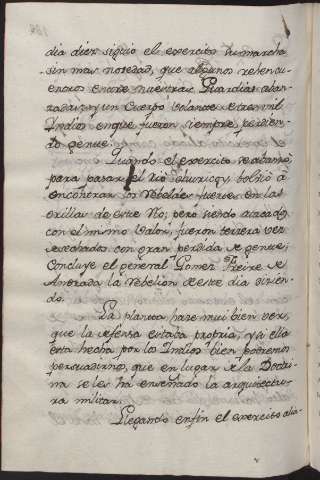 dia diez siguio el exercito su marcha
sin mas novedad, que algunos rebencu-
entros entre nuestras Guardias aban-
zadas, y un Cuerpo volante de tres mil
Indios enque fueron siempre perdien-
do gente.
Quando el exercito se abanzó,
para pasar el Rio churieby, bolvió á
encontrar los Rebeldes fuertes en las
orillas de este Rio; pero siendo atacados
con el mismo Valor, fueron tercera vez
desechados con gran perdida de gente;
Concluye el general Gomez Freire de
Andrada la Relacion de este dia dicien-
do.
La planta haze mui bien ver,
que la defensa estaba propria, y si ella
está hecha por los Indios bien podremos
persuadirnos, que en lugar de la Doctri-
na se les há enseñado la arquitectu-
ra militar.
Llegando enfin el exercito ala-